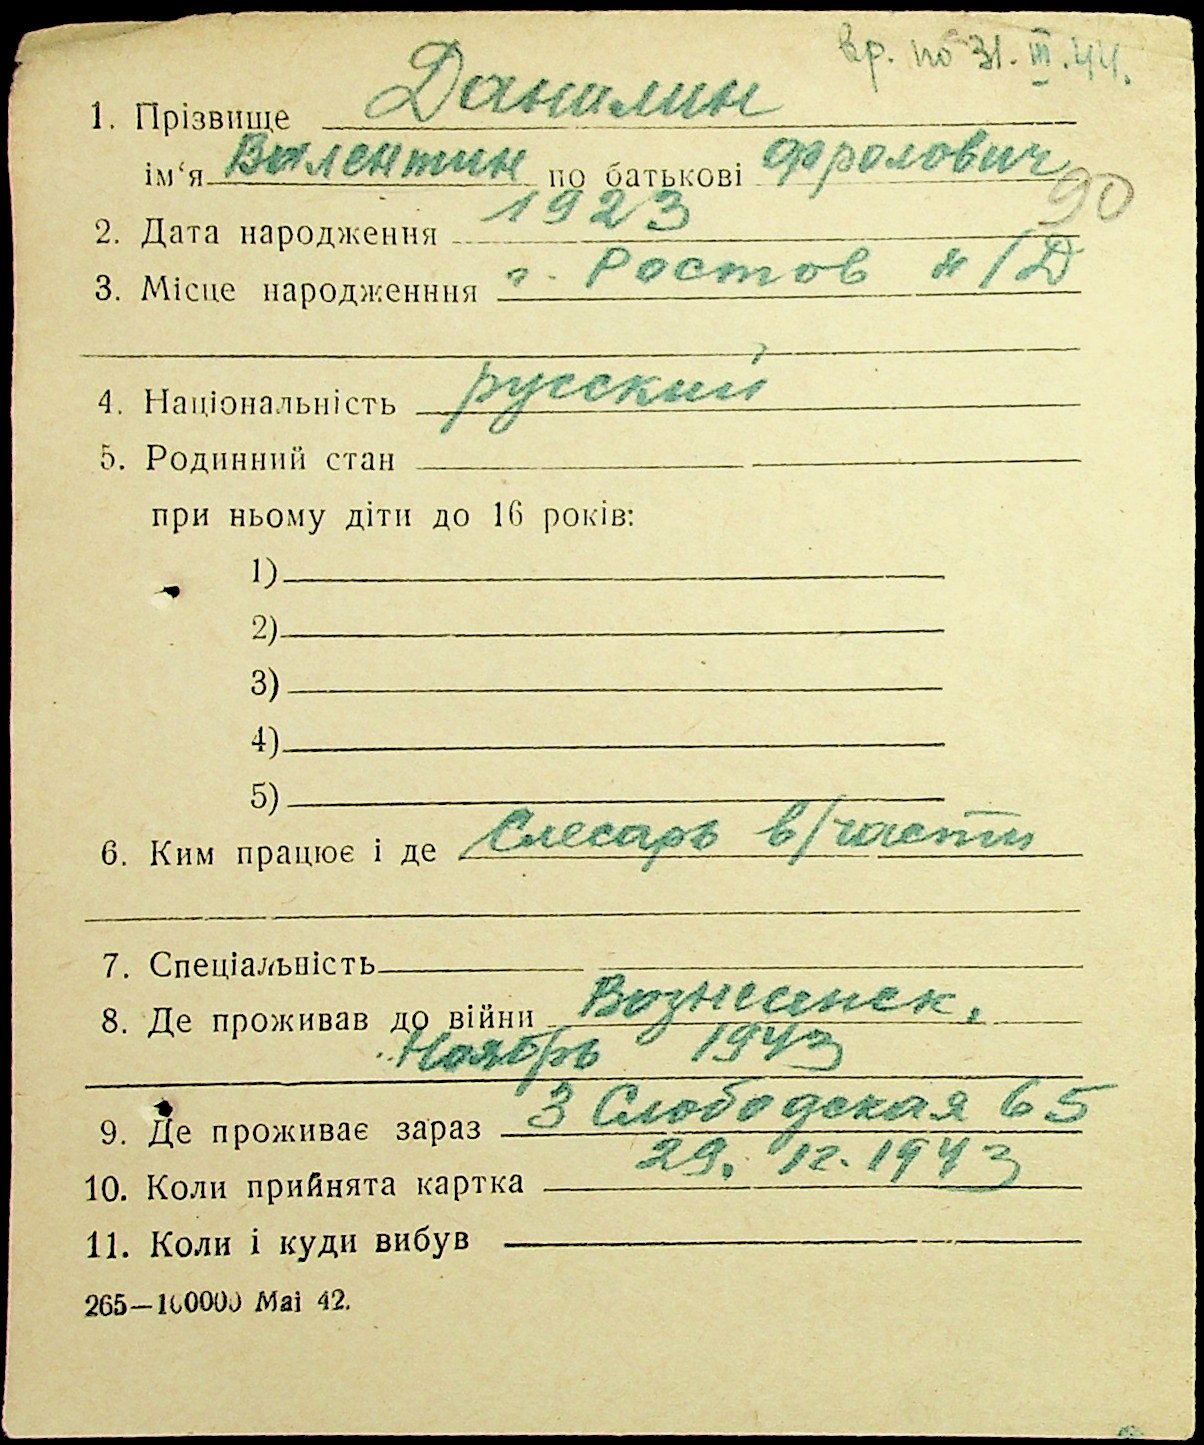 вр. по 31.III.44.
1. Прізвище Данилин
ім‘я Валентин по батькові Фролович
90
2. Дата народження 1923
3. Місце народженння г. Ростов н/Д
4. Національність русский
5. Родинний стан
при ньому діти до 16 років:
1)
2)
3)
4)
5)
6. Ким працює і де Слесарь в/части
7. Спеціальність
8. Де проживав до війни Вознесенск,
Ноябрь 1943
9. Де проживає зараз 3 Слободская 65
10. Коли прийнята картка 29. 12. 1943
11. Коли і куди вибув
265—100000 Mai 42.